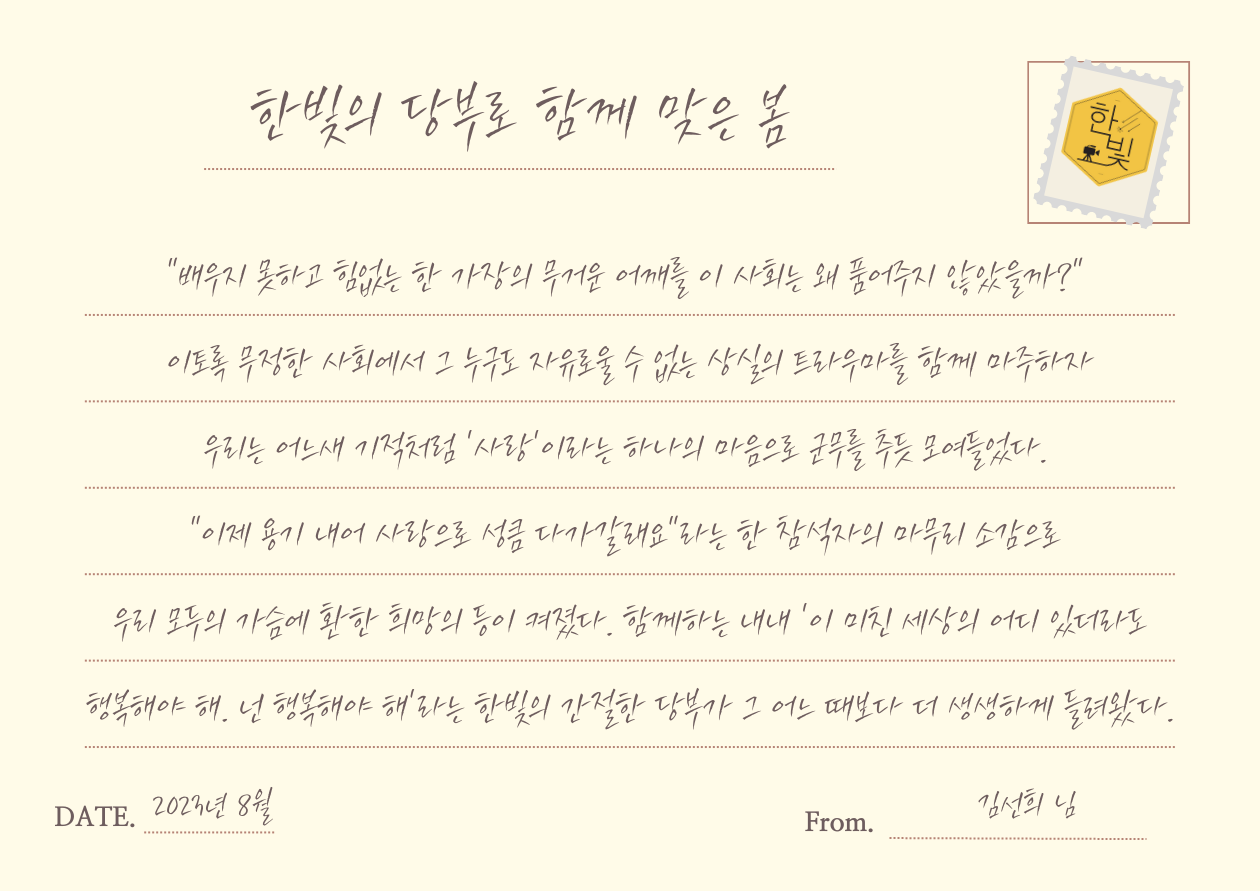 한빛의 당부로 함께 맞은 봄
한빛
"배우지 못하고 힘없는 한 가장의 무거운 어깨를 이 사회는 왜 품어주지 않았을까?"
이토록 무정한 사회에서 그 누구도 자유로울 수 없는 상실의 트라우마를 함께 마주하자
우리는 어느새 기적처럼 '사랑'이라는 하나의 마음으로 군무를 추듯 모여들었다.
"이제 용기 내어 사랑으로 성큼 다가갈래요"라는 한 참석자의 마무리 소감으로
우리 모두의 가슴에 환한 희망의 등이 켜졌다. 함께하는 내내 '이 미친 세상의 어디 있더라도
행복해야 해. 넌 행복해야 해'라는 한빛의 간절한 당부가 그 어느 때보다 더 생생하게 들려왔다.
DATE. 2023년 8월
From. 김선희 님